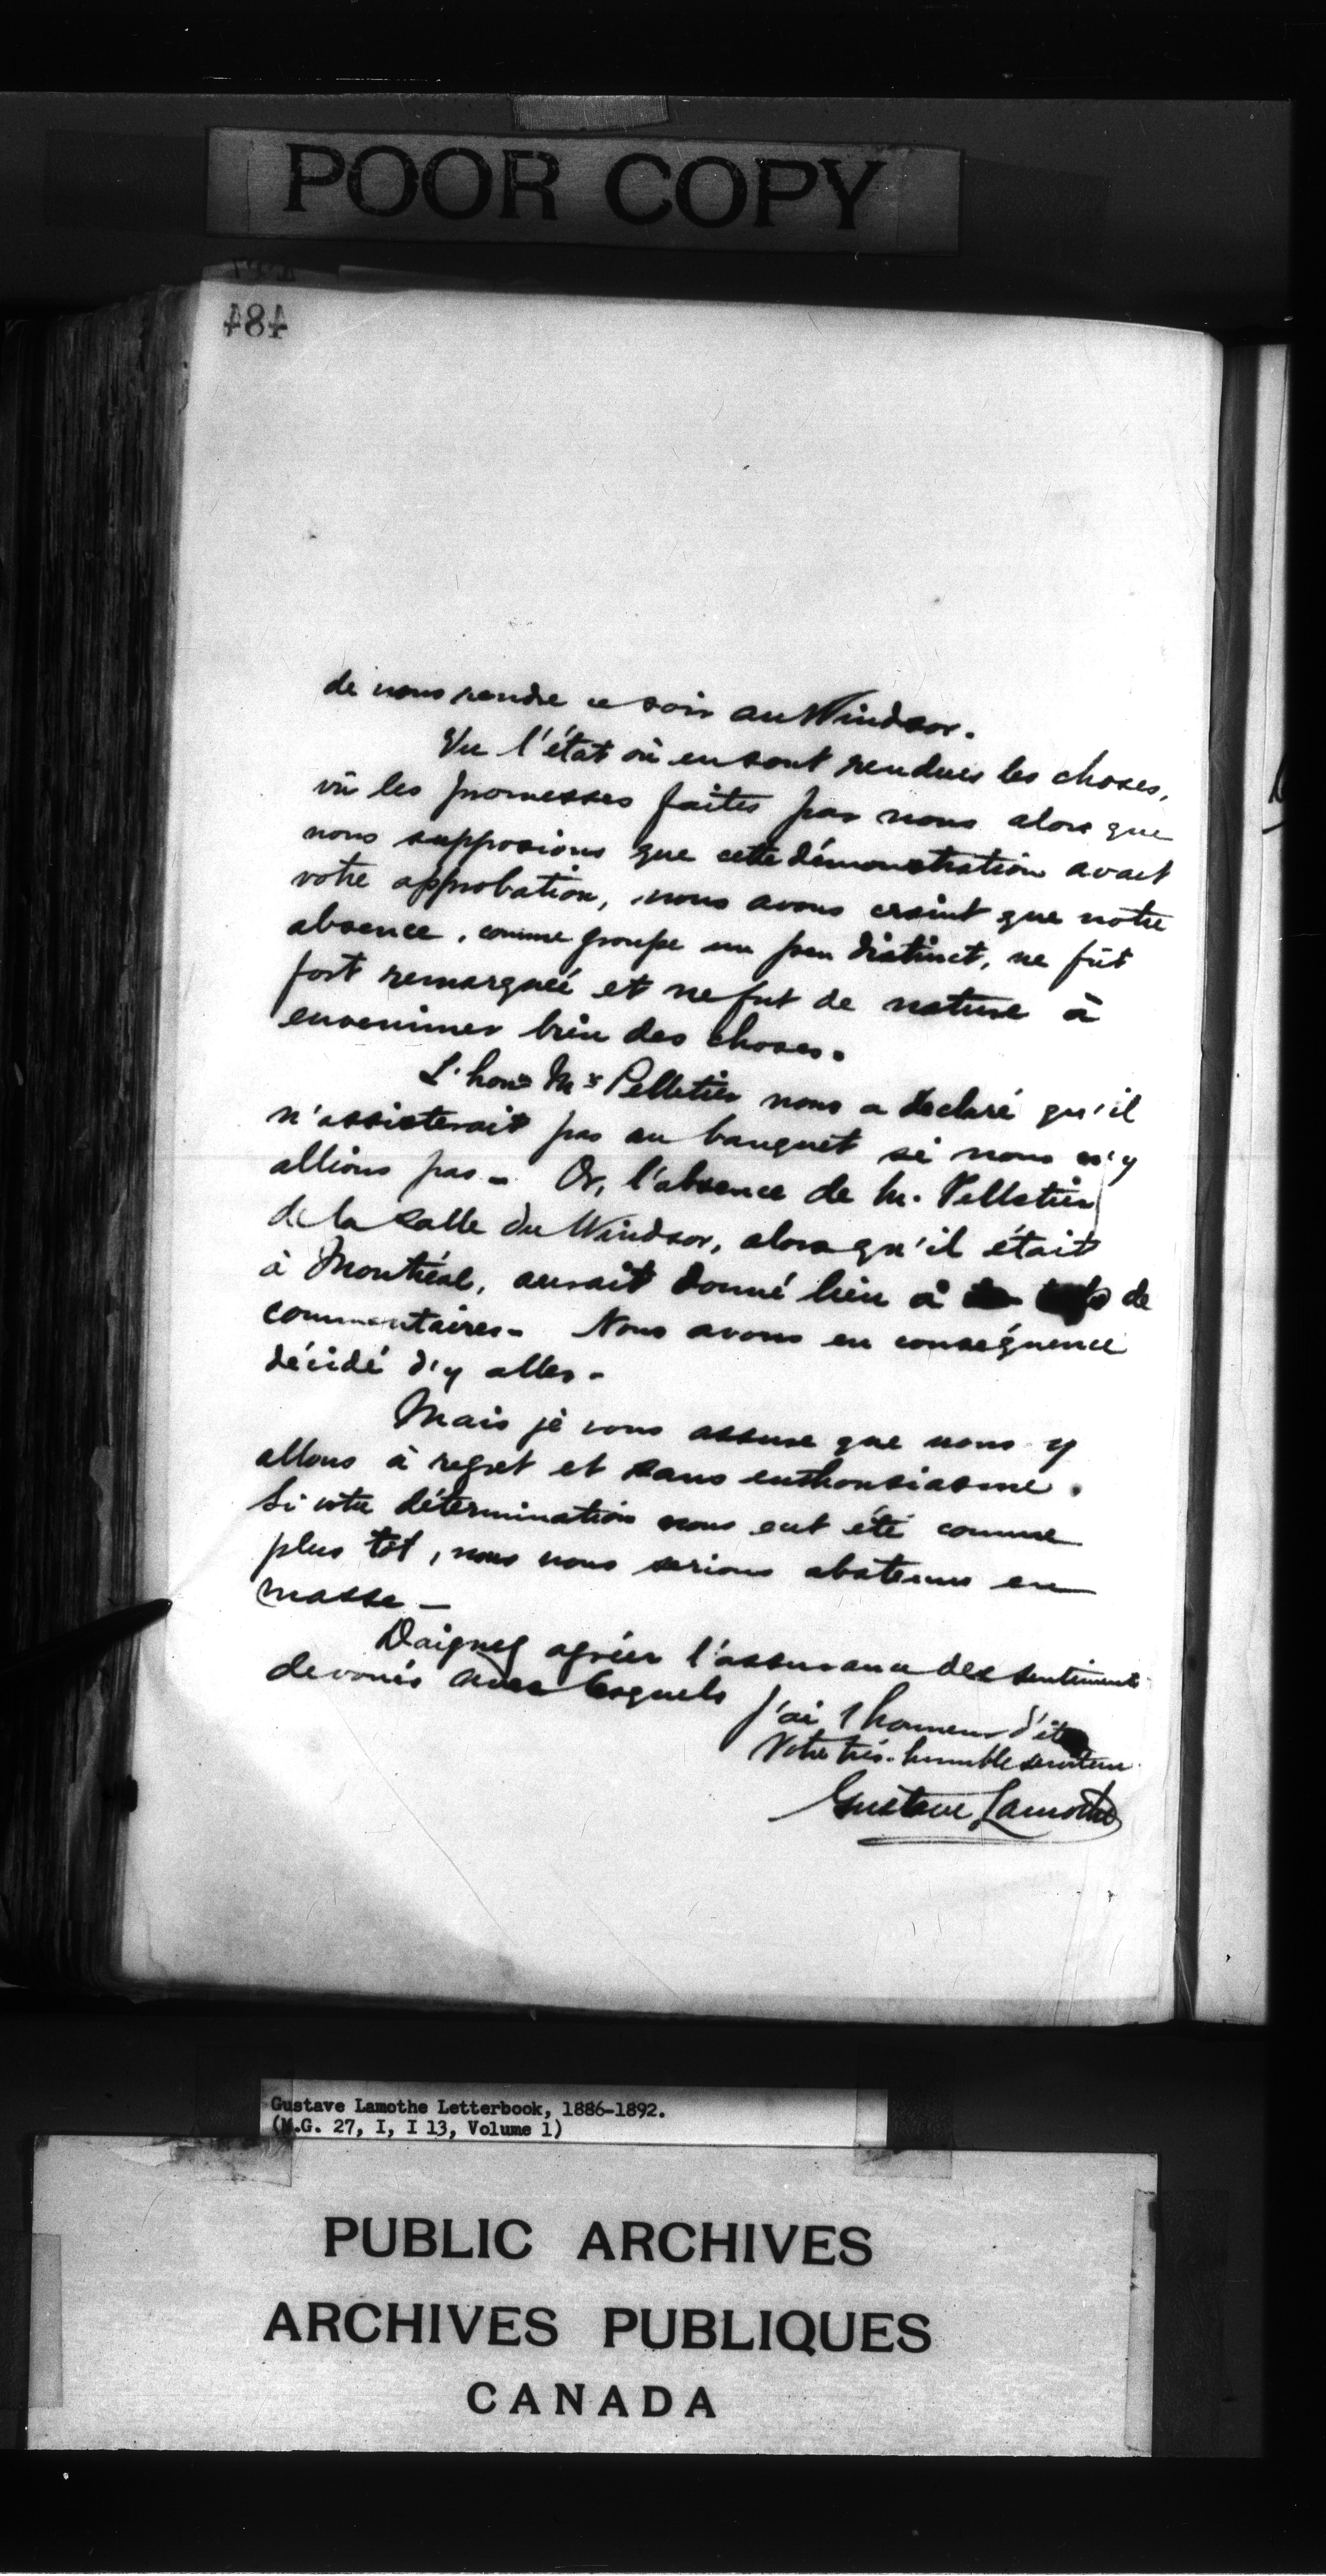 POOR COPY
484
de nous rendre ce soir au Windsor.
Vu l'état où en sont rendues les choses,
vû les promesses faites par nous alors que
nous supposions que cette démonstration avait
votre approbation, nous avons craint que notre
absence, comme groupe un peu distinct, ne fût
fort remarquée et ne fut de nature à
envenimer bien des choses.
L'hon. Mr Pelletier nous a declaré qu'il
n'assisterait pas au banquet si nous n'y
allions pas - Or, l'absence de M. Pelletier
de la salle du Windsor, alors qu'il était
à Montréal, aurait donné lieu à de
commentaires - Nous avons en conséquence
décidé d'y aller -
Mais je vous assure que nous y
allons à regret et sans enthousiasme.
Si votre détermination nous eut été connue
plus tôt, nous nous serions abstenus en
masse -
Daignez agréer l'assurance des sentiments
devoués avec lesquels
J'ai l'honneur d'être
Votre très-humble serviteur
Gustave Lamothe
Gustave Lamothe Letterbook, 1886-1892.
(M.G. 27, I, I 13, Volume 1)
PUBLIC ARCHIVES
ARCHIVES PUBLIQUES
CANADA